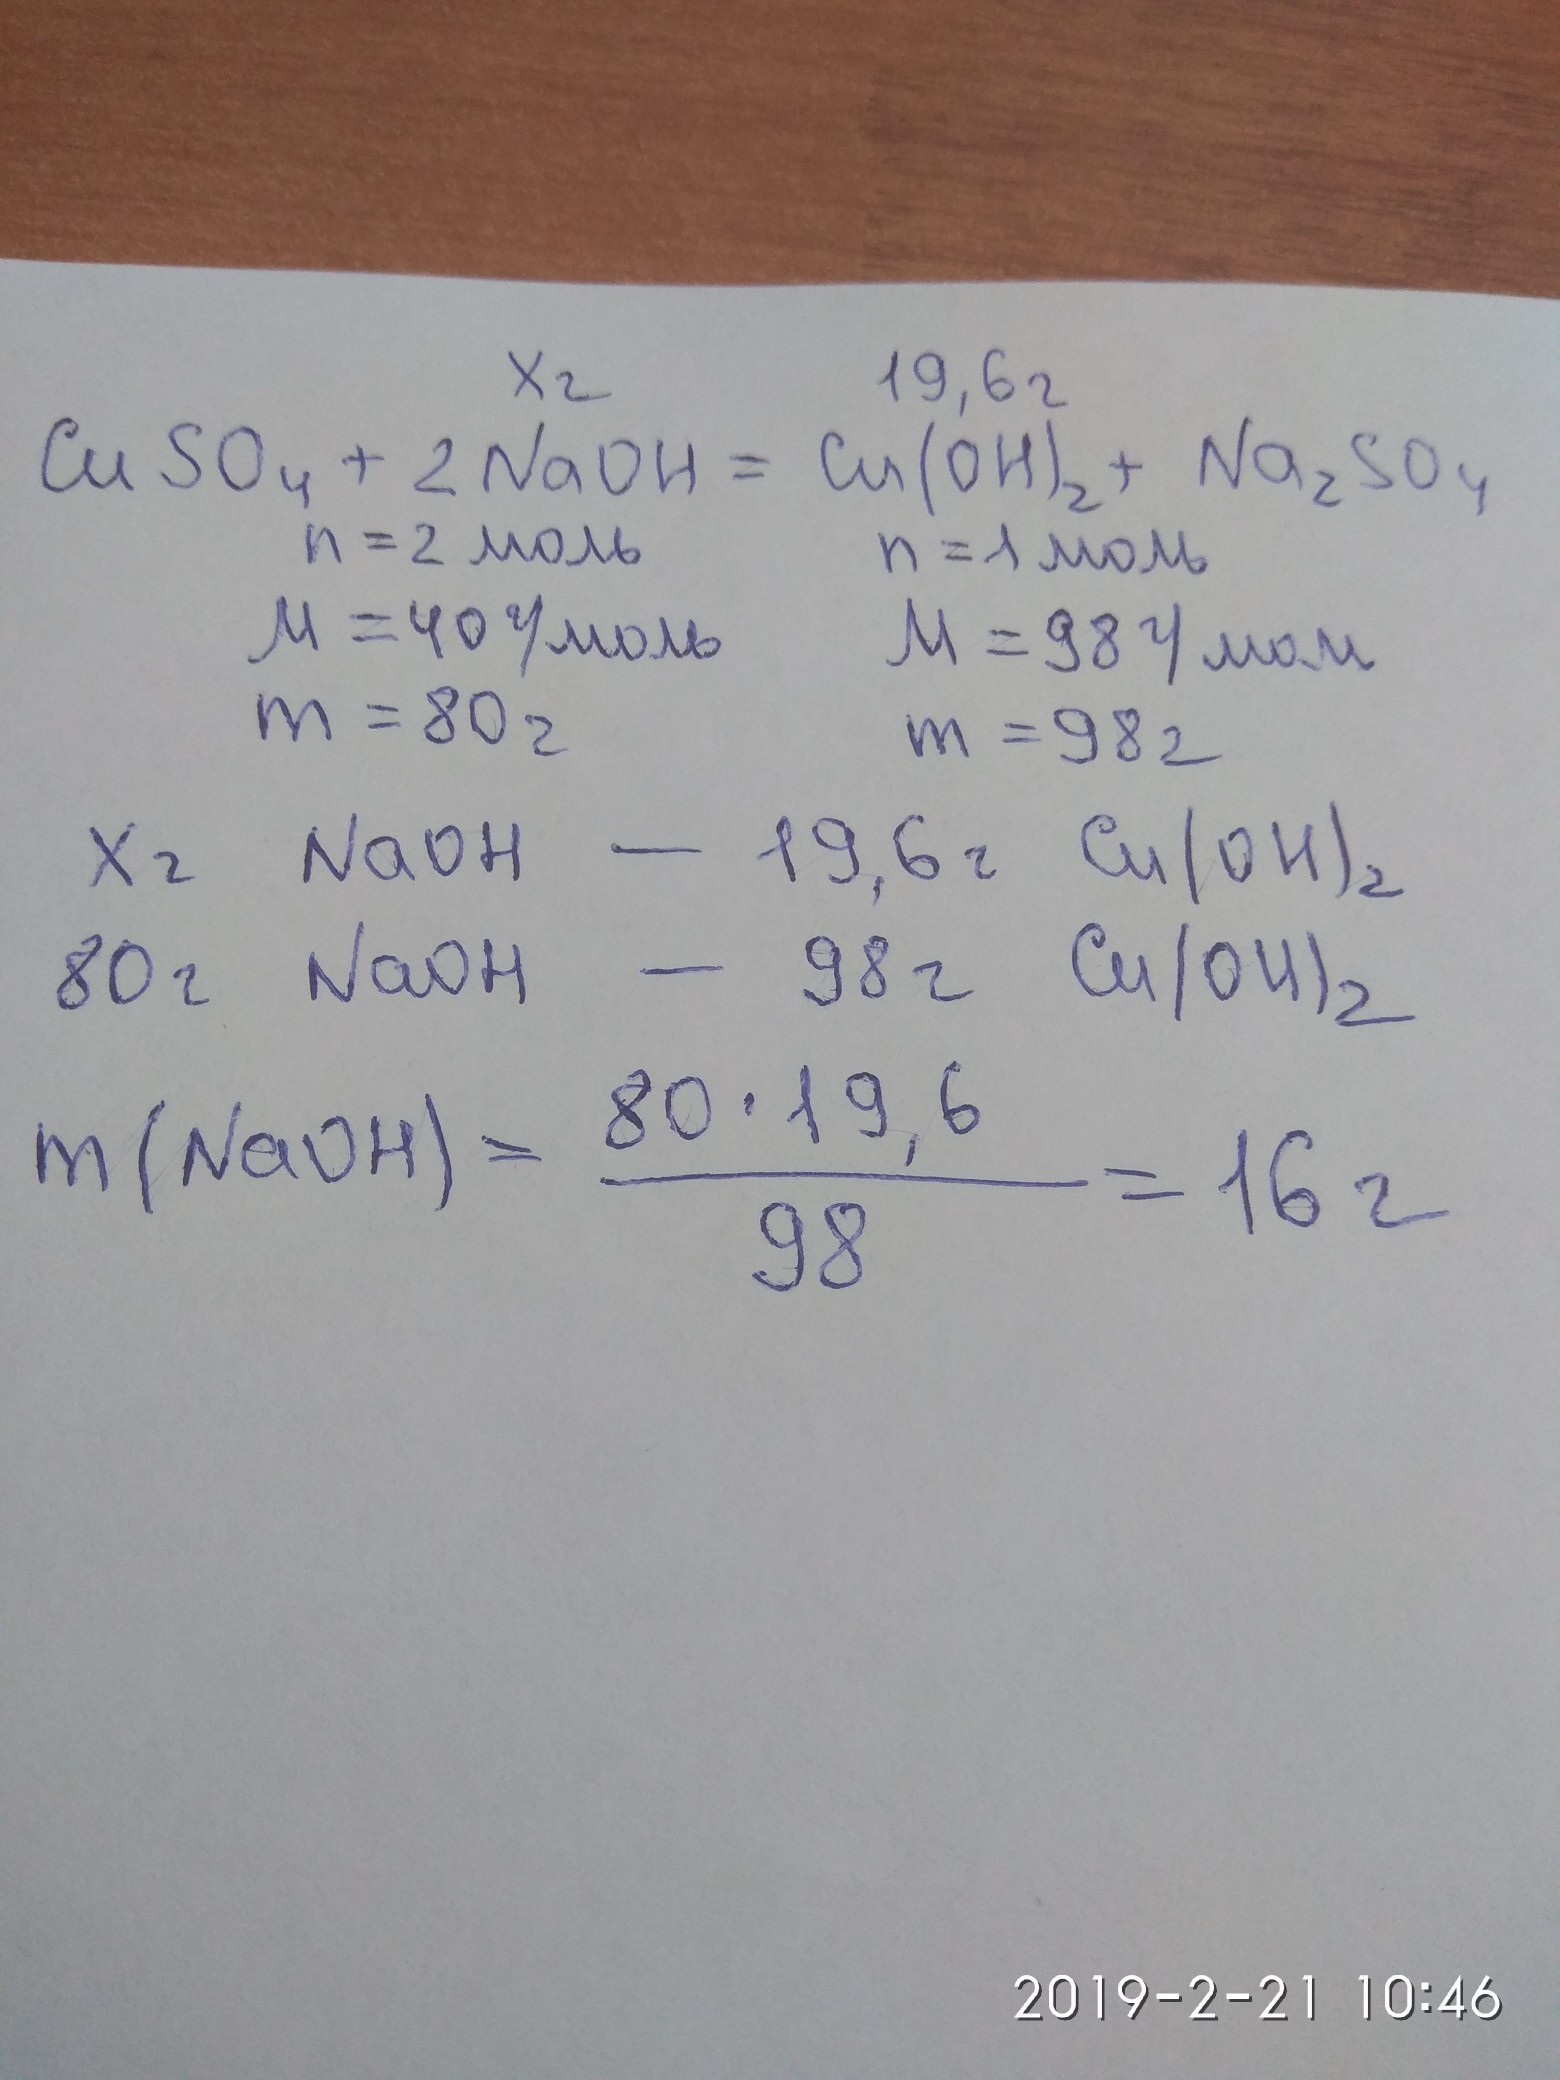 хг 19,6г
CuSO₄ + 2NaOH = Cu(OH)₂ + Na₂SO₄
n = 2 моль n = 1 моль
M = 40 г/моль M = 98 г/моль
m = 80г m = 98г
хг NaOH — 19,6г Cu(OH)₂
80г NaOH — 98г Cu(OH)₂
m(NaOH) = 80·19,6 / 98 = 16г
2019-2-21 10:46